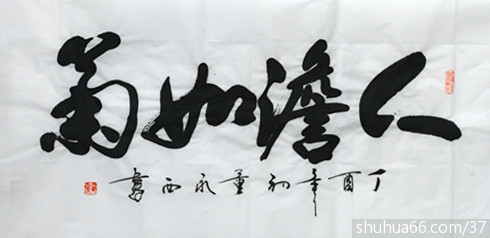 人澹如菊
丁酉年初董永西書
shuhua66.com/37